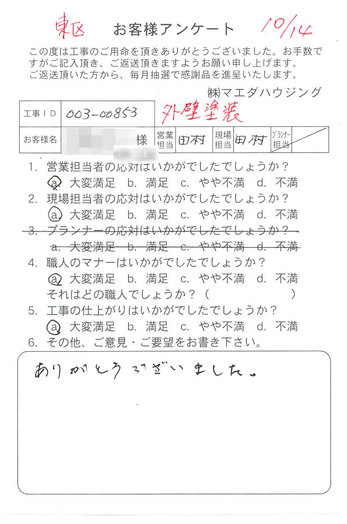 東区 お客様アンケート 10/14
この度は工事のご用命を頂きありがとうございました。お手数で
すがご記入頂き、ご返送頂きますようお願い申し上げます。
ご返送頂いた方から、毎月抽選で感謝品を進呈いたします。
㈱マエダハウジング
工事ID 003-00853 外壁塗装
お客様名 様 営業担当 田村 現場担当 田村 プランナー担当
1. 営業担当者の応対はいかがでしたでしょうか?
a. 大変満足 b. 満足 c. やや不満 d. 不満
2. 現場担当者の応対はいかがでしたでしょうか?
a. 大変満足 b. 満足 c. やや不満 d. 不満
3. プランナーの応対はいかがでしたでしょうか?
a. 大変満足 b. 満足 c. やや不満 d. 不満
4. 職人のマナーはいかがでしたでしょうか?
a. 大変満足 b. 満足 c. やや不満 d. 不満
それはどの職人でしょうか? ( )
5. 工事の仕上がりはいかがでしたでしょうか?
a. 大変満足 b. 満足 c. やや不満 d. 不満
6. その他、ご意見・ご要望をお書き下さい。
ありがとうございました。